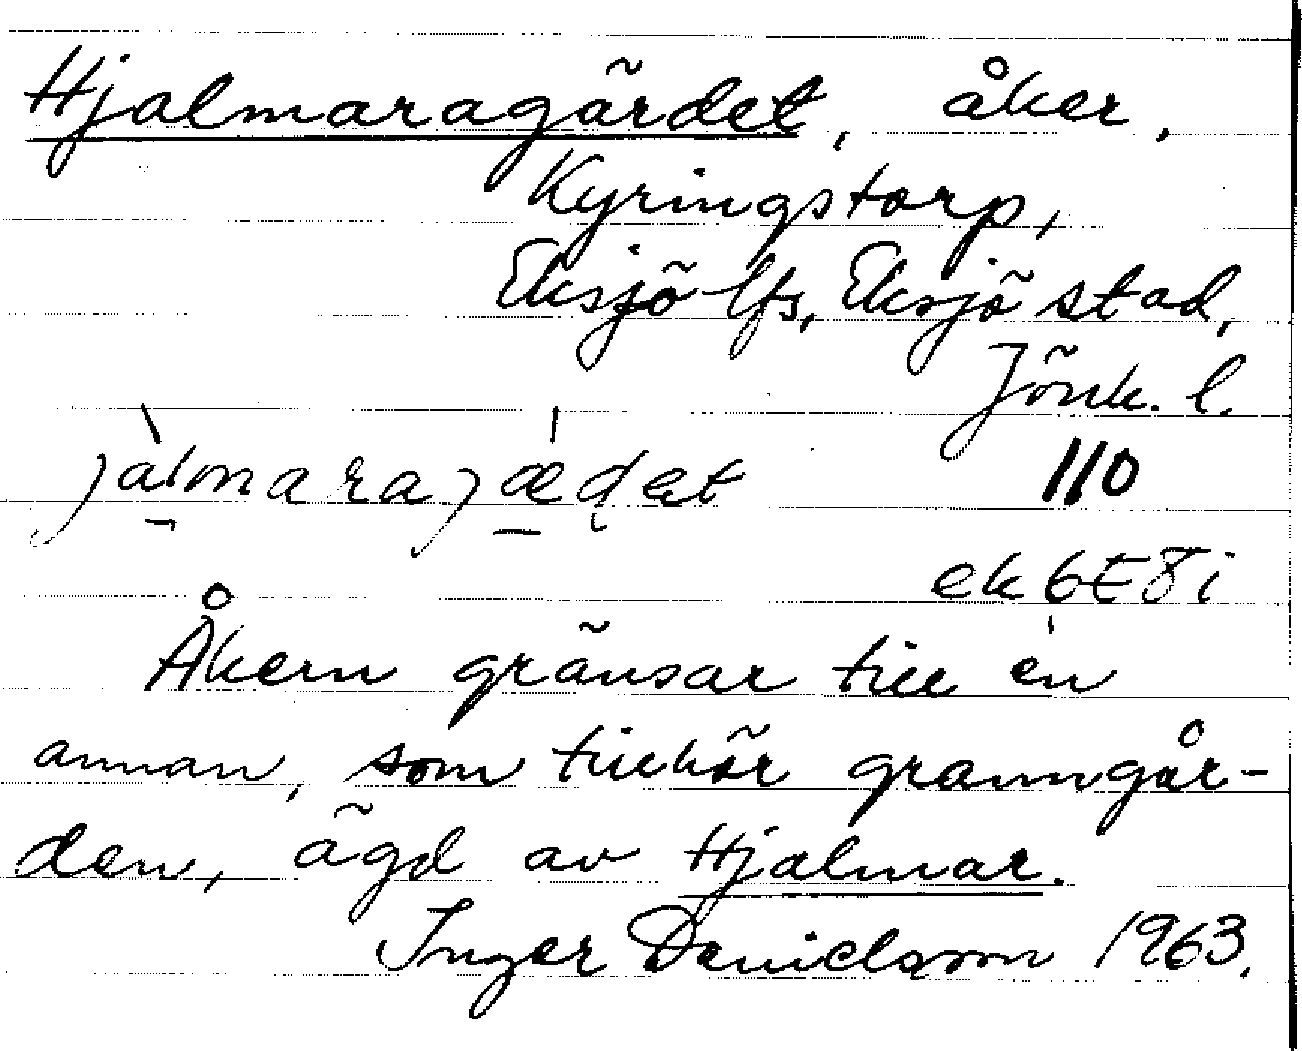 Hjalmaragärdet, åker,
Kyringstorp,
Eksjö lfs, Eksjö stad,
Jönk. l.
jàlmarajæɖet 110
ek 6E8i
Åkern gränsar till en
annan, som tillhör granngår-
den, ägd av Hjalmar.
Inger Danielsson 1963.